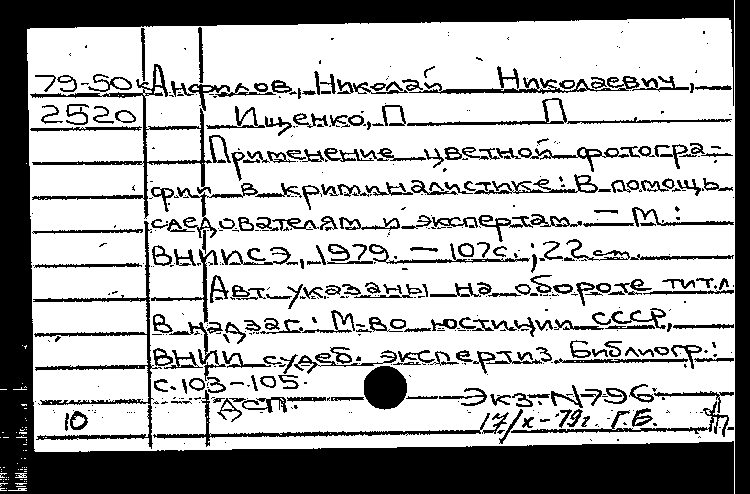 79-50к Анфилов, Николай Николаевич,
2520 Ищенко, П П
Применение цветной фотогра-
фии в криминалистике: В помощь
следователям и экспертам. — М.:
ВНИИСЭ, 1979. — 107с.; 22 см.
Авт. указаны на обороте тит.л
В надзаг.: М-во юстиции СССР,
ВНИИ судеб. экспертиз. Библиогр.:
с. 103-105.
ДСП. Экз. N796.
10 17/X-79г. Г.Б.